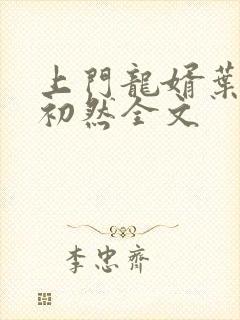 上門龍婿葉
初然全文
李忠齊